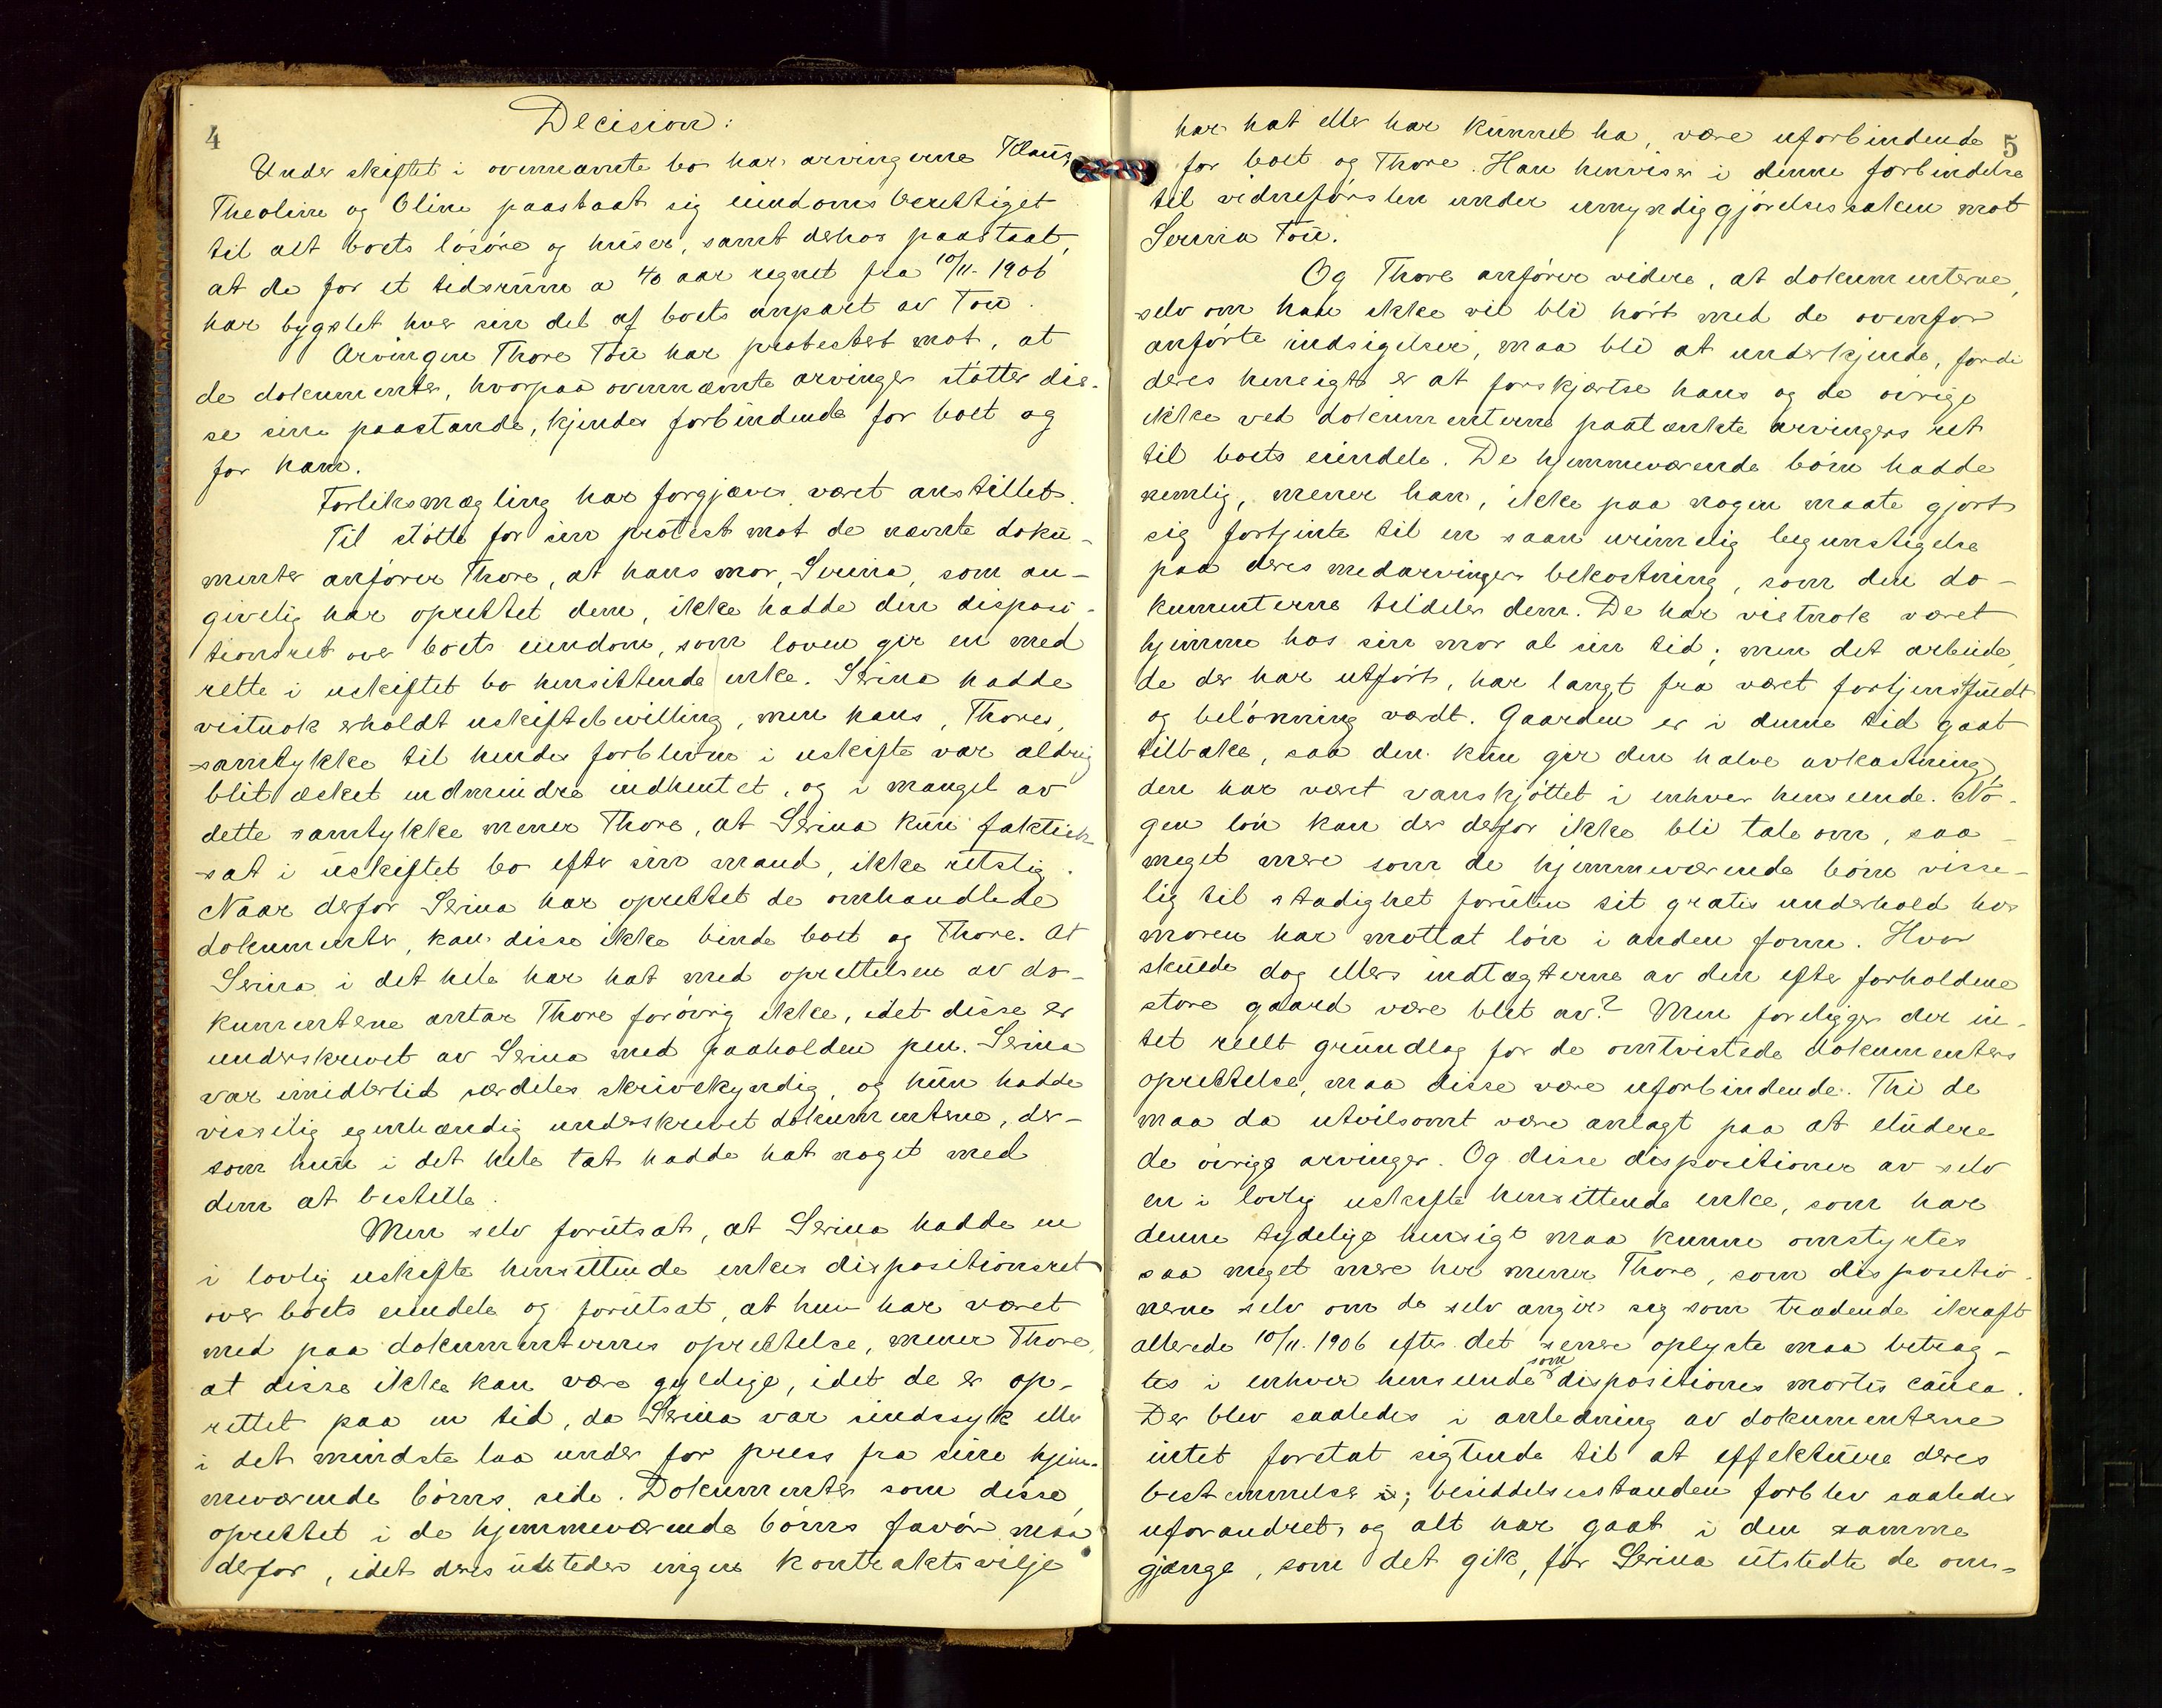 4
Decision:
Under skiftet i ovennævnte bo har arvingerne Klaus,
Theoline og Oline paastaat sig eiendomsberettiget
til alt boets løsøre og huser, samt derhos paastaat,
at de for et tidsrum a 40 aar regnet fra 10/11-1906
har bygslet hver sin del af boets anpart av Tou.
Arvingen Thore Tou har protestert mot, at
de dokumenter, hvorpaa ovennævnte arvinger støtter dis-
se sine paastande, kjendes forbindende for boet og
for ham.
Forliksmægling har forgjæves været anstillet.
Til støtte for sin protest mot de nævnte doku-
menter anfører Thore, at hans mor, Serina, som an-
givelig har oprettet dem, ikke hadde den disposi-
tionsret over boets eiendom, som loven gir en med
rette i uskiftet bo hensittende enke. Serina hadde
vistnok erholdt uskiftebevilling, men hans, Thores,
samtykke til hendes forbliven i uskifte var aldrig
blit æsket endmindre indhentet, og i mangel av
dette samtykke mener Thore, at Serina kun faktisk
sat i uskiftet bo efter sin mand, ikke retslig.
Naar derfor Serina har oprettet de omhandlede
dokumenter, kan disse ikke binde boet og Thore. At
Serina i det hele har hat med oprettelsen av do-
kumentene antar Thore forøvrig ikke, idet disse er
underskrevet av Serina med paaholden pen. Serina
var imidlertid særdeles skrivekyndig, og hun hadde
visselig egenhændig underskrevet dokumentene, der-
som hun i det hele tat hadde hat noget med
dem at bestille.
Men selv forutsat, at Serina hadde en
i lovlig uskifte hensittende enkes dispositionsret
over boets eiendele og forutsat, at hun har været
med paa dokumenternes oprettelse, mener Thore,
at disse ikke kan være gyldige, idet de er op-
rettet paa en tid, da Serina var sindssyk eller
i det mindste laa under for press fra sine hjem-
meværende børns side. Dokumenter som disse,
oprettet i de hjemmeværende børns favør maa
derfor, idet deres utsteder ingen kontraktsvilje
5
har hat eller har kunnet ha, være uforbindende
for boet og Thore. Han henviser i denne forbindelse
til vidneførslen under umyndiggjørelsessaken mot
Serina Tou.
Og Thore anfører videre, at dokumenterne,
selv om han ikke vil bli hørt med de ovenfor
anførte indsigelser, maa bli at underkjende, fordi
deres hensigt er at forskjertse hans og de øvrige
ikke ved dokumenterne paatænkte arvingers ret
til boets eiendele. De hjemmeværende børn hadde
nemlig, mener han, ikke paa nogen maate gjort
sig fortjente til en saan urimelig begunstigelse
paa deres medarvingers bekostning, som den do-
kumenterne tildeler dem. De har vistnok været
hjemme hos sin mor al sin tid; men det arbeide,
de der har utført, har langt fra været fortjenstfuldt
og belønning værdt. Gaarden er i denne tid gaat
tilbake, saa den kun gir den halve avkastning,
den har været vanskjøttet i enhver henseende. No-
gen løn kan der derfor ikke bli tale om, saa
meget mere som de hjemmeværende børn visse-
lig til stadighet foruten sit gratis underhold hos
moren har mottat løn i anden form. Hvor
skulde dog ellers indtægterne av den efter forholdene
store gaard være blit av? Men foreligger der in-
tet reelt grundlag for de omtvistede dokumenters
oprettelse, maa disse være uforbindende. Thi de
maa da utvilsomt være anlagt paa at eludere
de øvrige arvinger. Og disse dispositioner av selv
en i lovlig uskifte hensittende enke, som har
denne tydelige hensigt maa kunne omstyrtes
saa meget mere her mener Thore, som dispositio-
nerne selv om de selv angir sig som trædende ikraft
allerede 10/11.1906 efter det senere oplyste maa betrag-
tes i enhver henseende som dispositiones mortis causa.
Der blev saaledes i anledning av dokumenterne
intet foretat sigtende til at effektuere deres
bestemmelser; besiddelsesstanden forblev saaledes
uforandret, og alt har gaat i den samme
gjænge, som det gik, før Serina utstedte de om-